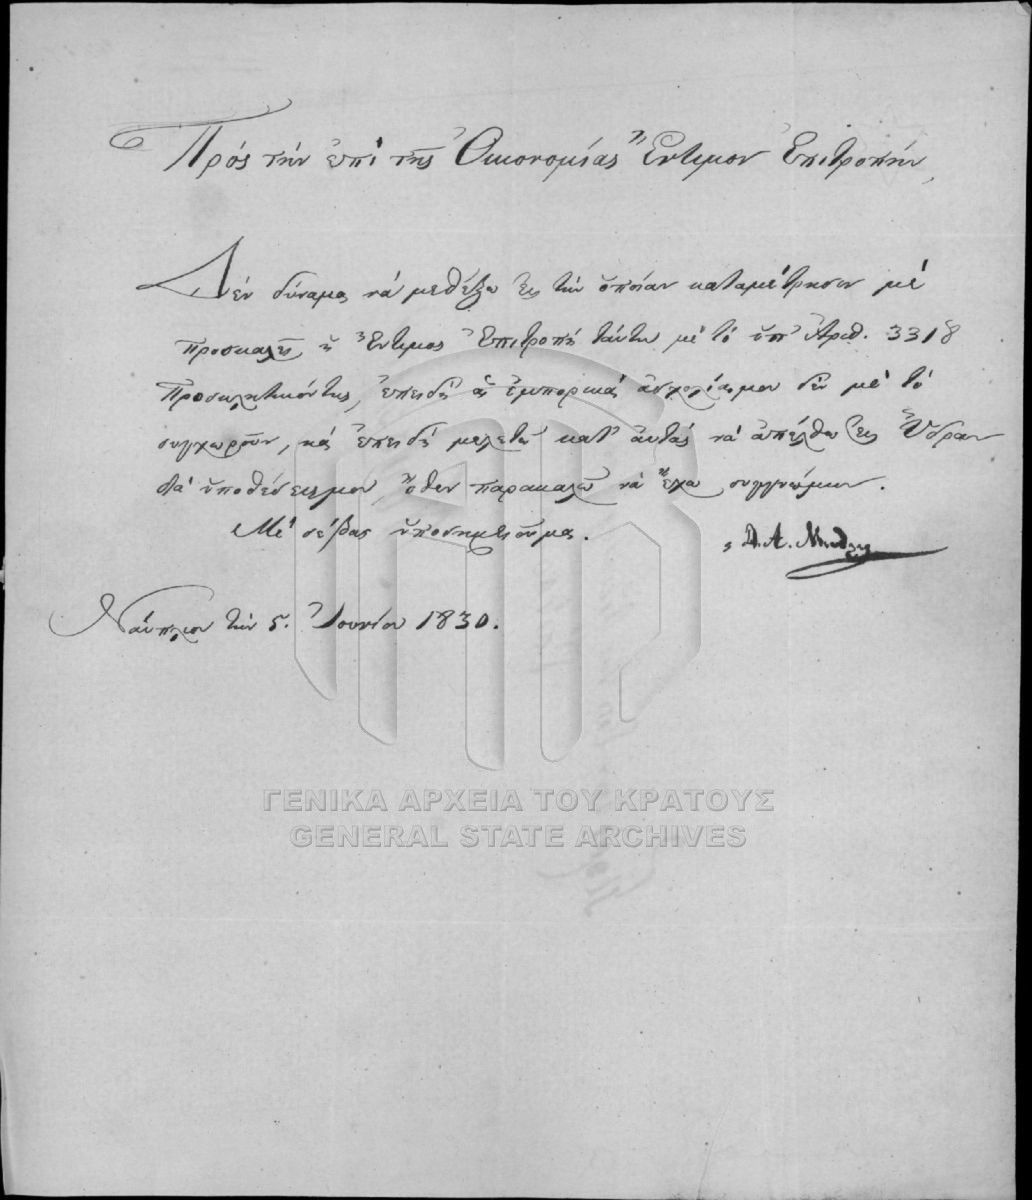 Πρὸς τὴν ἐπὶ τῆς Οἰκονομίας Ἔντιμον Ἐπιτροπήν,
Δὲν δύναμαι νὰ μεθέξω εἰς τὴν ὁποίαν καταμέτρησιν μὲ
προσκαλεῖ ἡ Ἔντιμος Ἐπιτροπὴ αὕτη μὲ τὸ ὑπ' Ἀριθ. 3318
Προσκλητικόν της, ἐπειδὴ αἱ ἐμπορικαί ἀσχολίαι μου δὲν μὲ τὸ
συγχωροῦν, καὶ ἐπειδὴ μελετῶ κατ' αὐτὰς νὰ ἀπέλθω εἰς Ὕδραν
διὰ ὑποθέσεις μου, ὅθεν παρακαλῶ νὰ ἔχω συγγνώμην.
Μὲ σέβας ὑποσημειοῦμαι.
Δ. Α.
Ναύπλιον τὴν 5. Ἰουνίου 1830.
ΓΕΝΙΚΑ ΑΡΧΕΙΑ ΤΟΥ ΚΡΑΤΟΥΣ
GENERAL STATE ARCHIVES